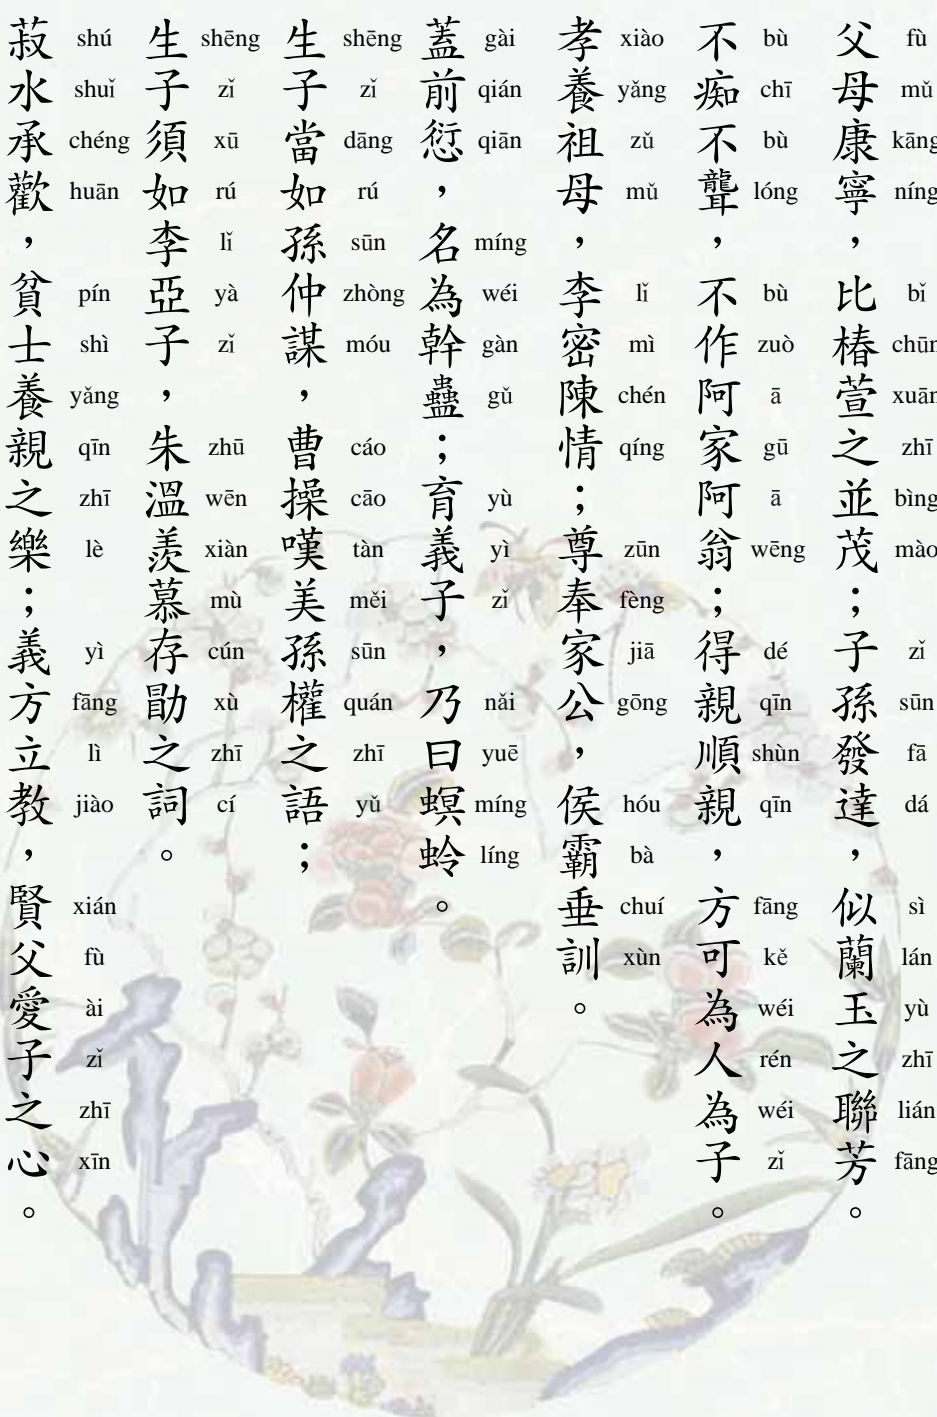 父母康寧，比椿萱之並茂；子孫發達，似蘭玉之聯芳。
fù mǔ kāng níng bǐ chūn xuān zhī bìng mào zǐ sūn fā dá sì lán yù zhī lián fāng
不痴不聾，不作阿家阿翁；得親順親，方可為人為子。
bù chī bù lóng bù zuò ā gū ā wēng dé qīn shùn qīn fāng kě wéi rén wéi zǐ
孝養祖母，李密陳情；尊奉家公，侯霸垂訓。
xiào yǎng zǔ mǔ lǐ mì chén qíng zūn fèng jiā gōng hóu bà chuí xùn
蓋前愆，名為幹蠱；育義子，乃曰螟蛉。
gài qián qiān míng wéi gàn gǔ yù yì zǐ nǎi yuē míng líng
生子當如孫仲謀，曹操嘆美孫權之語；
shēng zǐ dāng rú sūn zhòng móu cáo cāo tàn měi sūn quán zhī yǔ
生子須如李亞子，朱溫羨慕存勖之詞。
shēng zǐ xū rú lǐ yà zǐ zhū wēn xiàn mù cún xù zhī cí
菽水承歡，貧士養親之樂；義方立教，賢父愛子之心。
shú shuǐ chéng huān pín shì yǎng qīn zhī lè yì fāng lì jiào xián fù ài zǐ zhī xīn